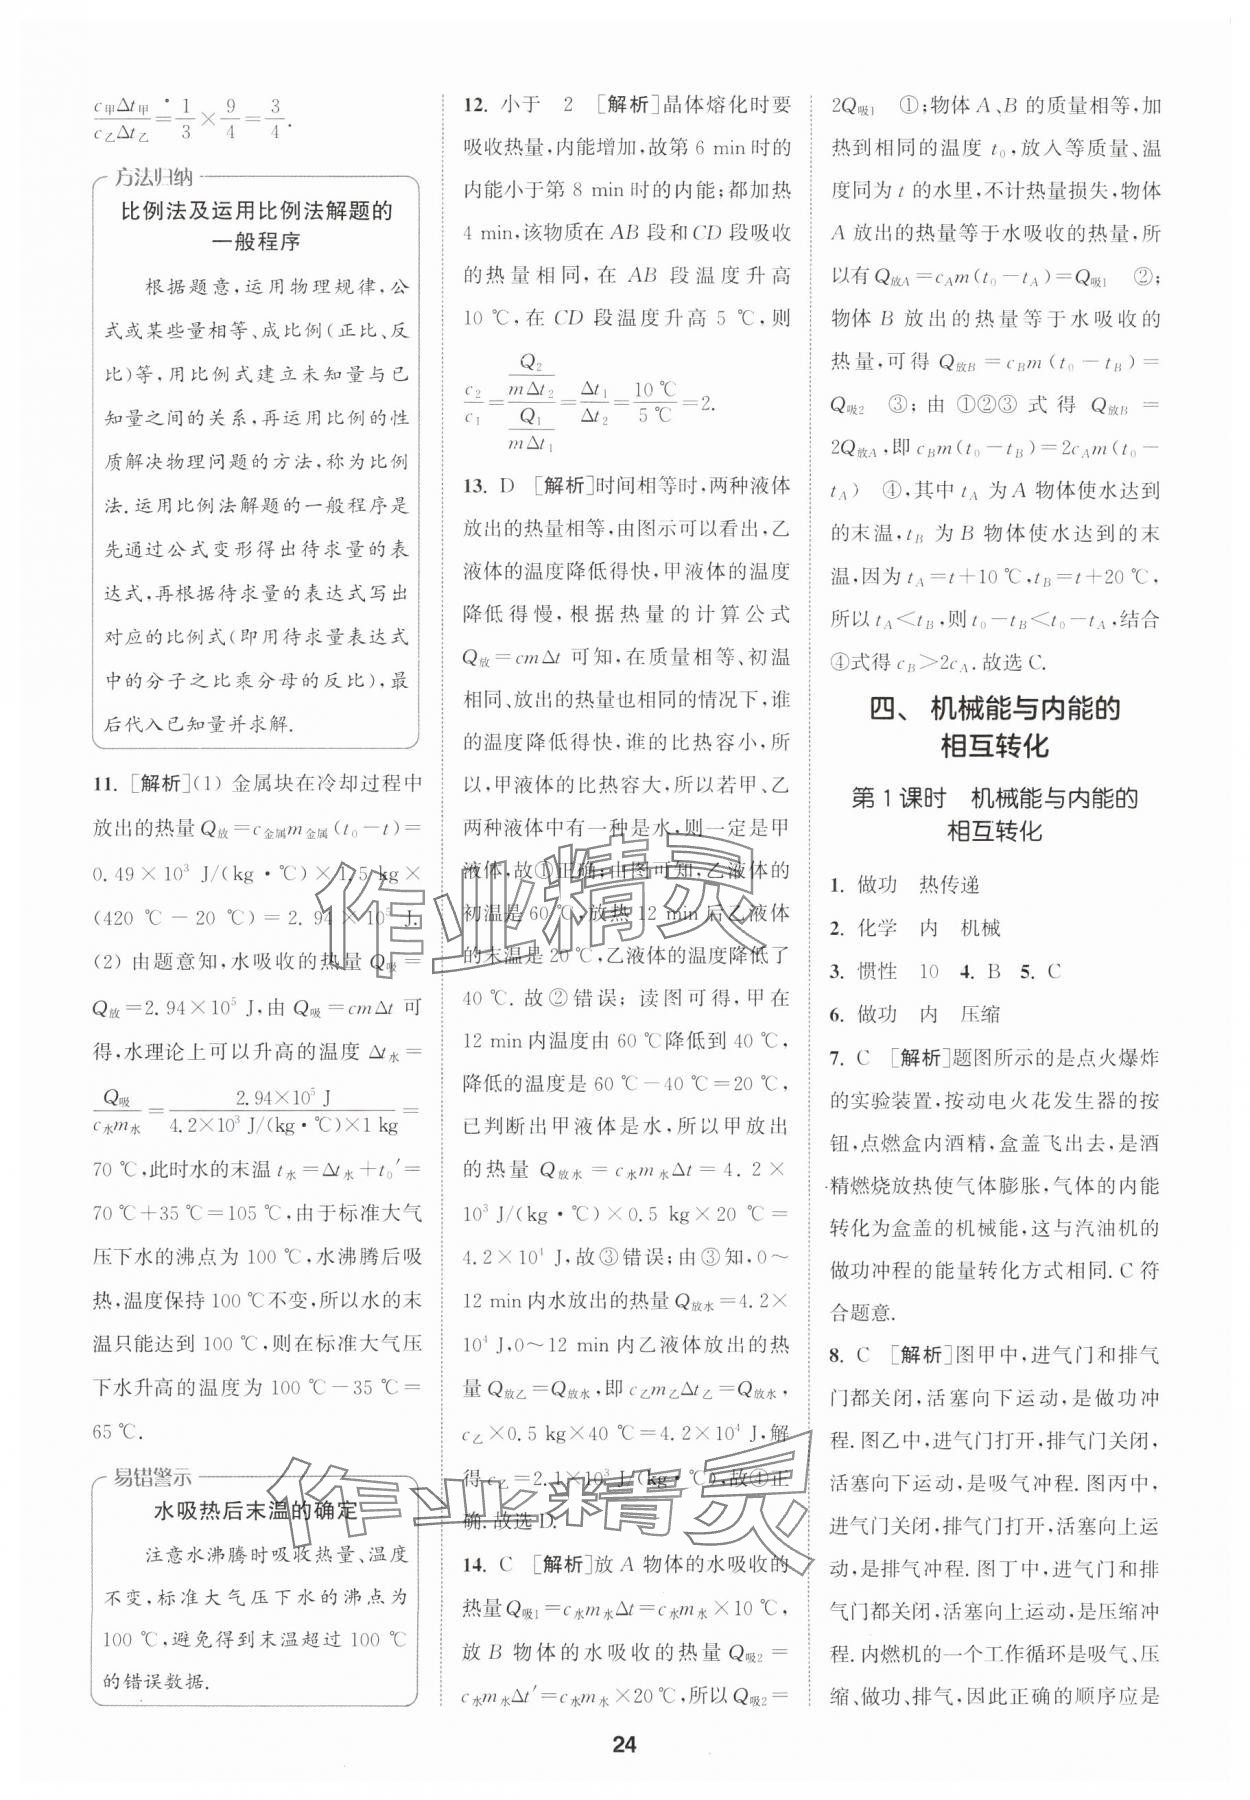 c甲Δt甲/c乙Δt乙=1/3×9/4=3/4.
方法归纳
比例法及运用比例法解题的
一般程序
根据题意,运用物理规律,公
式或某些量相等、成比例(正比、反
比)等,用比例式建立未知量与已
知量之间的关系,再运用比例的性
质解决物理问题的方法,称为比例
法.运用比例法解题的一般程序是
先通过公式变形得出待求量的表
达式,再根据待求量的表达式写出
对应的比例式(即用待求量表达式
中的分子之比乘分母的反比),最
后代入已知量并求解.
11. [解析](1) 金属块在冷却过程中
放出的热量 Q放=c金属m金属(t₀-t)=
0.49×10³ J/(kg·℃)×1.5 kg×
(420 ℃-20 ℃)=2.94×10⁵ J.
(2) 由题意知,水吸收的热量 Q吸=
Q放=2.94×10⁵ J,由 Q吸=cmΔt 可
得,水理论上可以升高的温度 Δt水=
Q吸/c水m水=2.94×10⁵ J/4.2×10³ J/(kg·℃)×1 kg=
70 ℃,此时水的末温 t水=Δt水+t₀′=
70 ℃+35 ℃=105 ℃,由于标准大气
压下水的沸点为 100 ℃,水沸腾后吸
热,温度保持 100 ℃不变,所以水的末
温只能达到 100 ℃,则在标准大气压
下水升高的温度为 100 ℃-35 ℃=
65 ℃.
易错警示
水吸热后末温的确定
注意水沸腾时吸收热量、温度
不变,标准大气压下水的沸点为
100 ℃,避免得到末温超过 100 ℃
的错误数据.
12. 小于 2 [解析]晶体熔化时要
吸收热量,内能增加,故第 6 min 时的
内能小于第 8 min 时的内能;都加热
4 min,该物质在 AB 段和 CD 段吸收
的热量相同,在 AB 段温度升高
10 ℃,在 CD 段温度升高 5 ℃,则
c₂/c₁=(Q₂/mΔt₂)/(Q₁/mΔt₁)=Δt₁/Δt₂=10 ℃/5 ℃=2.
13. D [解析]时间相等时,两种液体
放出的热量相等,由图示可以看出,乙
液体的温度降低得快,甲液体的温度
降低得慢,根据热量的计算公式
Q放=cmΔt 可知,在质量相等、初温
相同、放出的热量也相同的情况下,谁
的温度降低得快,谁的比热容小,所
以,甲液体的比热容大,所以若甲、乙
两种液体中有一种是水,则一定是甲
液体,故①正确;由图可知,乙液体的
初温是 60 ℃,放热 12 min 后乙液体
的末温是 20 ℃,乙液体的温度降低了
40 ℃.故②错误;读图可得,甲在
12 min 内温度由 60 ℃降低到 40 ℃,
降低的温度是 60 ℃-40 ℃=20 ℃,
已判断出甲液体是水,所以甲放出
的热量 Q放水=c水m水Δt=4.2×
10³ J/(kg·℃)×0.5 kg×20 ℃=
4.2×10⁴ J,故③错误;由③知,0~
12 min 内水放出的热量 Q放水=4.2×
10⁴ J,0~12 min 内乙液体放出的热
量 Q放乙=Q放水,即 c乙m乙Δt乙=Q放水,
c乙×0.5 kg×40 ℃=4.2×10⁴ J,解
得 c乙=2.1×10³ J/(kg·℃),故④正
确.故选 D.
14. C [解析]放 A 物体的水吸收的
热量Q吸1=c水m水Δt=c水m水×10 ℃,
放 B 物体的水吸收的热量 Q吸2=
c水m水Δt′=c水m水×20 ℃,所以 Q吸2=
2Q吸1 ①;物体 A、B 的质量相等,加
热到相同的温度 t₀,放入等质量、温
度同为 t 的水里,不计热量损失,物体
A 放出的热量等于水吸收的热量,所
以有 Q放A=cAm(t₀-tA)=Q吸1 ②;
物体 B 放出的热量等于水吸收的
热量,可得 Q放B=cBm(t₀-tB)=
Q吸2 ③;由 ①②③ 式得 Q放B=
2Q放A,即 cBm(t₀-tB)=2cAm(t₀-
tA) ④,其中 tA 为 A 物体使水达到
的末温,tB 为 B 物体使水达到的末
温,因为 tA=t+10 ℃,tB=t+20 ℃,
所以 tA<tB,则 t₀-tB<t₀-tA,结合
④式得 cB>2cA.故选 C.
四、 机械能与内能的
相互转化
第 1 课时 机械能与内能的
相互转化
1. 做功 热传递
2. 化学 内 机械
3. 惯性 10 4. B 5. C
6. 做功 内 压缩
7. C [解析]题图所示的是点火爆炸
的实验装置,按动电火花发生器的按
钮,点燃盒内酒精,盒盖飞出去,是酒
精燃烧放热使气体膨胀,气体的内能
转化为盒盖的机械能,这与汽油机的
做功冲程的能量转化方式相同.C 符
合题意.
8. C [解析]图甲中,进气门和排气
门都关闭,活塞向下运动,是做功冲
程.图乙中,进气门打开,排气门关闭,
活塞向下运动,是吸气冲程.图丙中,
进气门关闭,排气门打开,活塞向上运
动,是排气冲程.图丁中,进气门和排
气门都关闭,活塞向上运动,是压缩冲
程.内燃机的一个工作循环是吸气、压
缩、做功、排气,因此正确的顺序应是
作业精灵
作业精灵
24